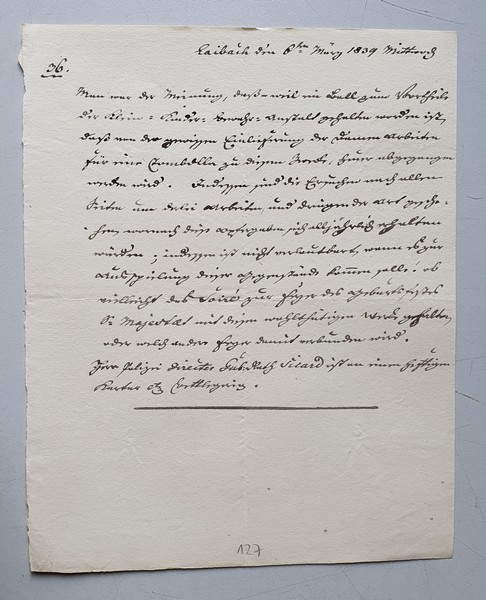 Laibach den 6ten März 1839 Mittwoch
36.
Man war der Meinung, daß weil ein Ball zum Vortheile
der Klein-Kinder-Bewahr-Anstalt gehalten worden ist,
daß von der Einlieferung der Damen Arbeiten
für eine Tombolla zu diesem Zwecke, heuer abgegangen
werden wird. Indessen sind die Ersuchen nach allen
Seiten um derlei Arbeiten, und der Art gesche-
hen, wornach diese sich alljährlich erhalten
würden; indessen ist nicht verlautbart, wann es zur
Ausspielung dieser Gegenstände kommen solle: ob
vielleicht das Soiré zur Feyer des Geburtsfestes
Sr Majestät mit diesem wohlthätigen Werke gehalten,
oder welch andere Feyer damit verbunden wird.
Herr Polizei Director Sicard ist an einem heftigen
Kartar etz bettlägerig.
127